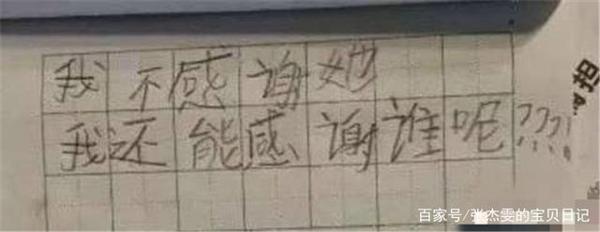 我不感谢她
我还能感谢谁呢????!
百家号/张杰雯的宝贝日记